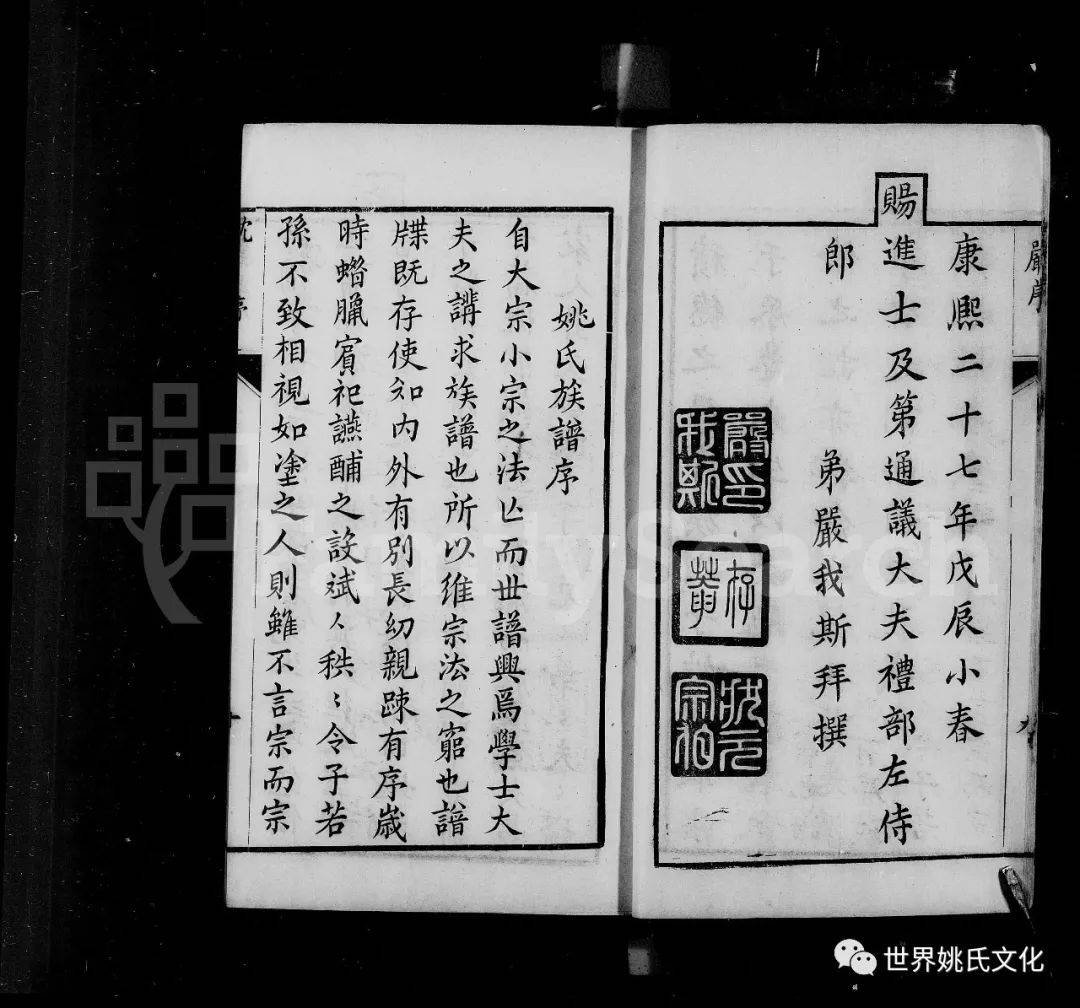 嚴序
康熈二十七年戊辰小春
賜進士及第通議大夫禮部左侍
郎 弟嚴我斯拜撰
嚴印我斯
存菴
狀元宗伯
姚氏族譜序
自大宗小宗之法亾而丗譜興爲學士大
夫之講求族譜也所以維宗法之窮也譜
牒既存使知内外有別長幼親踈有序歲
時蜡臘賓祀讌酺之設斌々秩々令子若
孫不致相視如塗之人則雖不言宗而宗
沈序
FamilySearch
世界姚氏文化